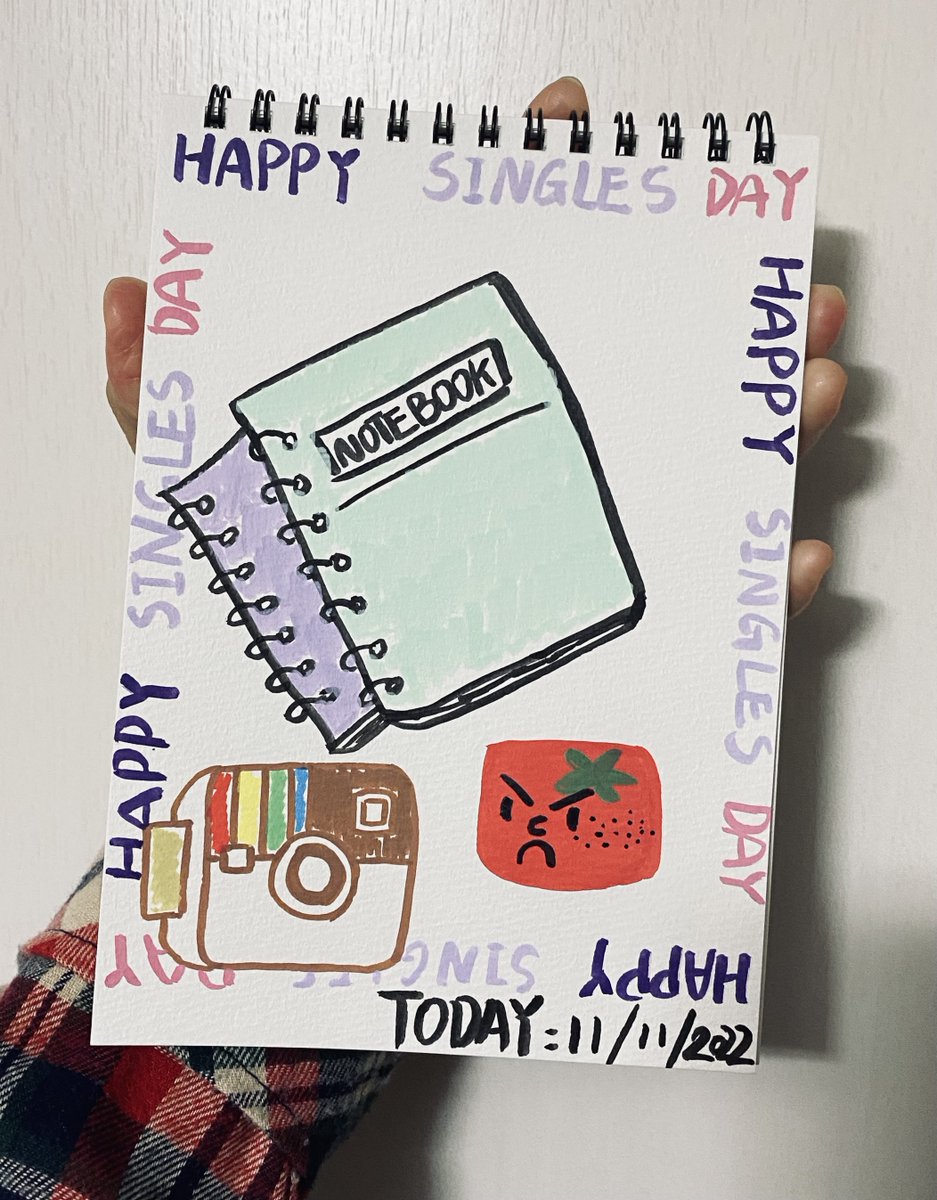 HAPPY SINGLES DAY
HAPPY SINGLES DAY
HAPPY SINGLES DAY
HAPPY SINGLES DAY
NOTEBOOK
TODAY: 11/11/2022